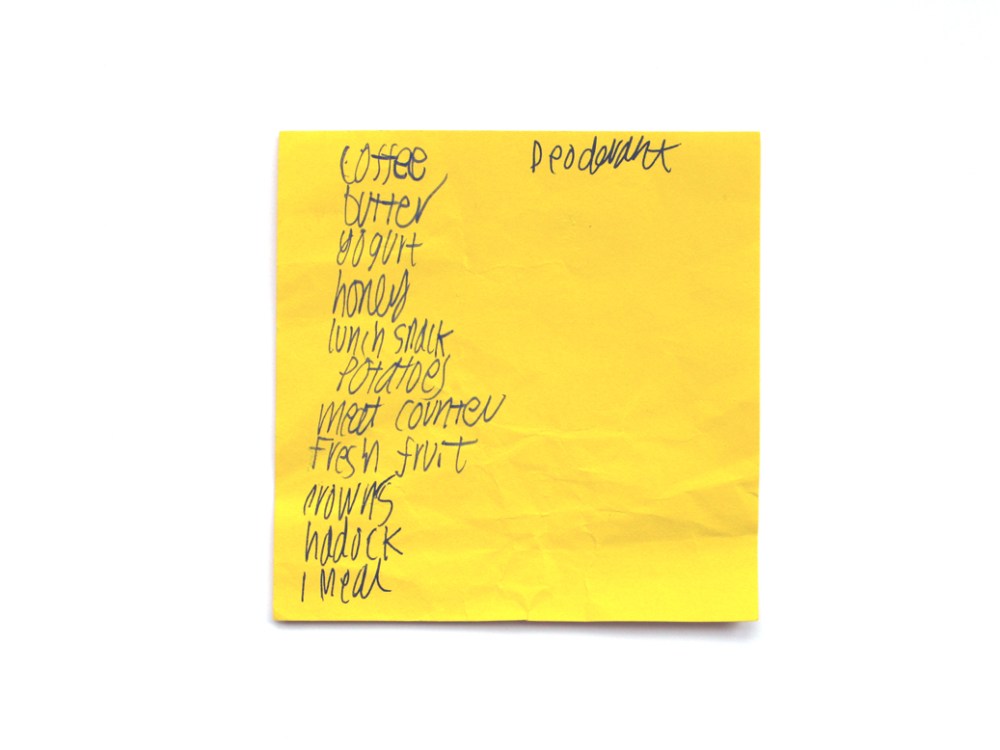 Coffee
butter
yogurt
honey
lunch snack
Potatoes
meat counter
Fresh fruit
hadock
1 Meal
Deoderant